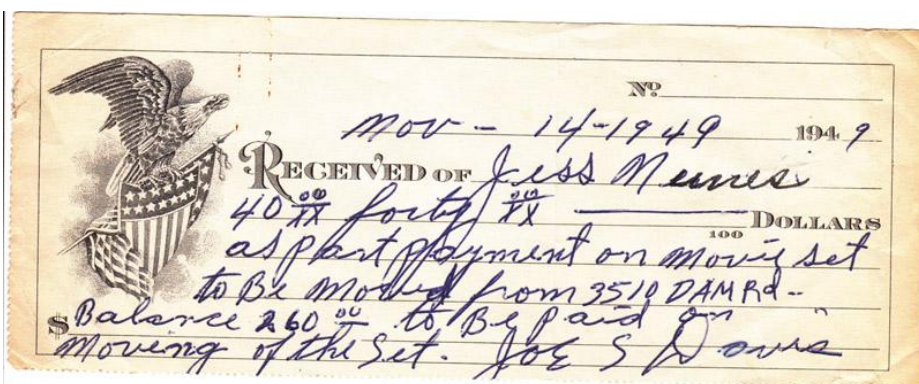 No
Nov - 14-1949 1949
RECEIVED OF Jess Meunes
40 00/XX forty 00/XX DOLLARS
100
as part payment on movie set
to Be Moved from 3510 DAM Rd-
$ Balance 260 00 to Be paid on
Moving of the Set. JOE S Davis